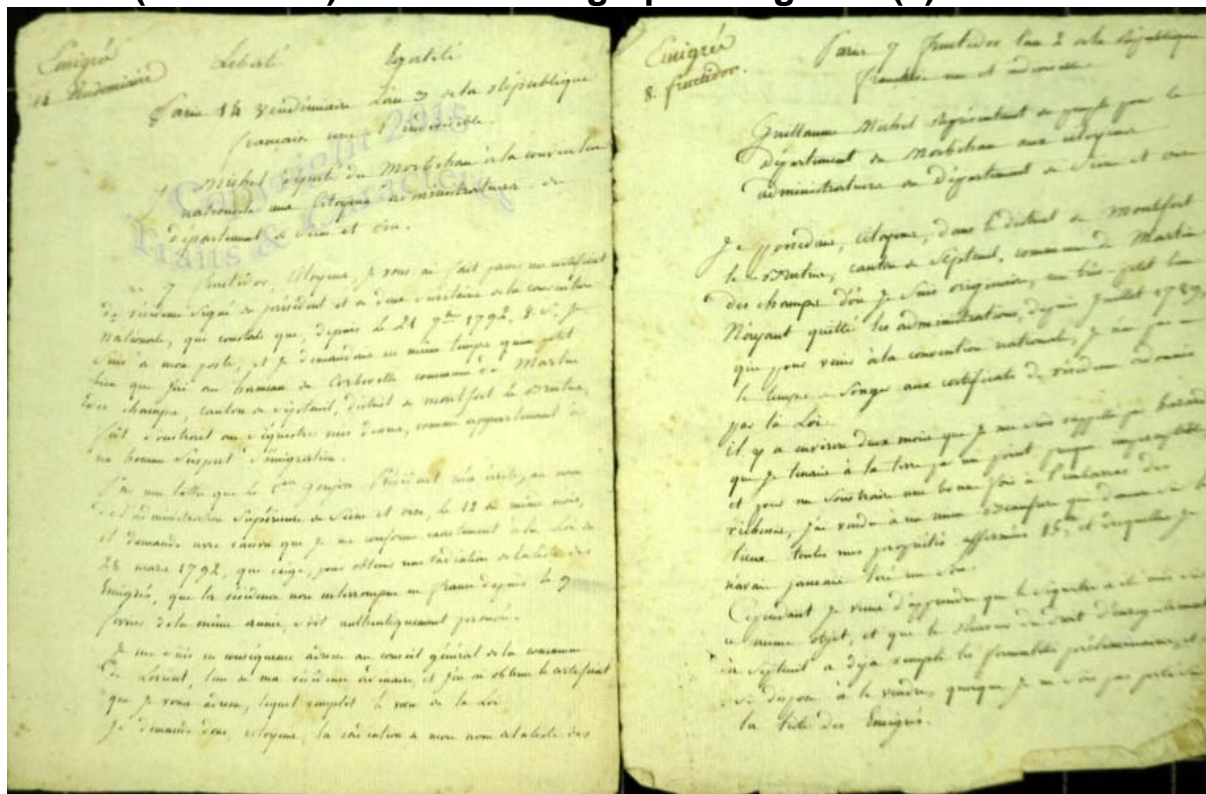 Emigrés
14 Vendemiaire
Liberté Egalité
Paris 14 Vendémiaire L'an 3 de la République
française une & indivisible.
Michel député du Morbihan à la convention
nationale aux Citoyens administrateurs du
Département de Seine et Oise.
Le 9 fructidor, Citoyens, je vous ai fait passer un certificat
de résidence signé du président et de deux secrétaires de la convention
nationale, qui constate que, depuis le 21 7bre 1792, V. S. je
suis à mon poste, et je demandais en même temps qu'un petit
bien que j'ai au hameau de Corbeville commune de Martin
des champs, canton de Septeuil, district de Montfort le Brutus,
fût soustrait au séquestre mis dessus, comme appartenant à
un homme suspect d'émigration.
Par une lettre que le Cen Goujon Président m'a écrite, au nom
de l'administration supérieure de Seine et Oise, le 12 du même mois,
il demande avec raison que je me conforme exactement à la Loi du
28 mars 1792, qui exige, pour obtenir une radiation de la liste des
Emigrés, que la résidence non interrompue en france depuis le 9
février de la même année, soit authentiquement prouvée.
Je me suis en conséquence adressé au conseil général de la commune
de Lorient, lieu de ma résidence ordinaire, et j'en ai obtenu le certificat
que je vous adresse, lequel remplit le vœu de la Loi.
Je demande donc, citoyens, la radiation de mon nom de la liste des
Emigrés
8. fructidor.
Paris 7 fructidor l'an 2 de la République
française une et indivisible.
Guillaume Michel Représentant du peuple pour le
Département du Morbihan aux citoyens
administrateurs du Département de Seine et Oise
Je possédais, Citoyens, dans le district de Montfort
le Brutus, canton de Septeuil, commune de Martin
des champs d'où je suis originaire, un très-petit bien
N'ayant quitté les administrations, depuis Juillet 1789,
que pour venir à la convention nationale, je n'ai pas eu
le temps de songer aux certificats de résidence ordonnés
par la Loi.
il y a environ deux mois que je me suis rappelé par hazard
que je tenais à la terre par un point presque imperceptible
et pour me soustraire une bonne fois à l'embarras des
richesses, j'ai vendu à un mien Beaufrère qui demeure sur les
lieux toutes mes propriétés affermées 15# et desquelles je
n'avais jamais tiré un sou.
Cependant je viens d'apprendre que le séquestre a été mis sur
ce mince objet, et que le Receveur du droit d'enregistrement
de Septeuil a déja rempli les formalités préliminaires, et
se dispose à le vendre, quoique je ne sois pas porté sur
la liste des Emigrés.
Copyright 2015
Traits & Caractères